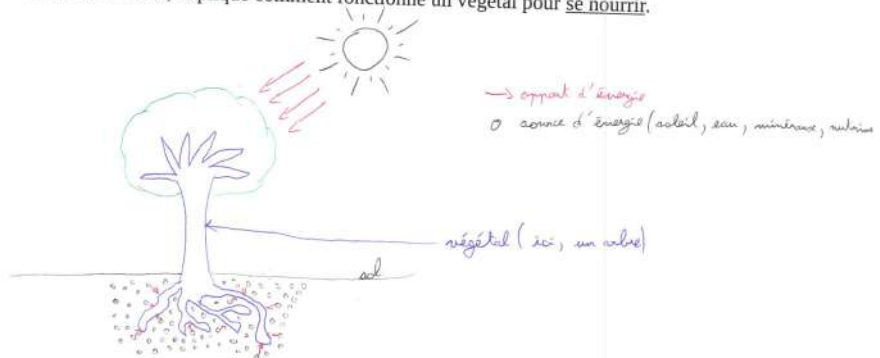 comment fonctionne un végétal pour se nourrir.
→ apport d'énergie
o source d'énergie (soleil, eau, minéraux,
végétal (ici, un arbre)
sol